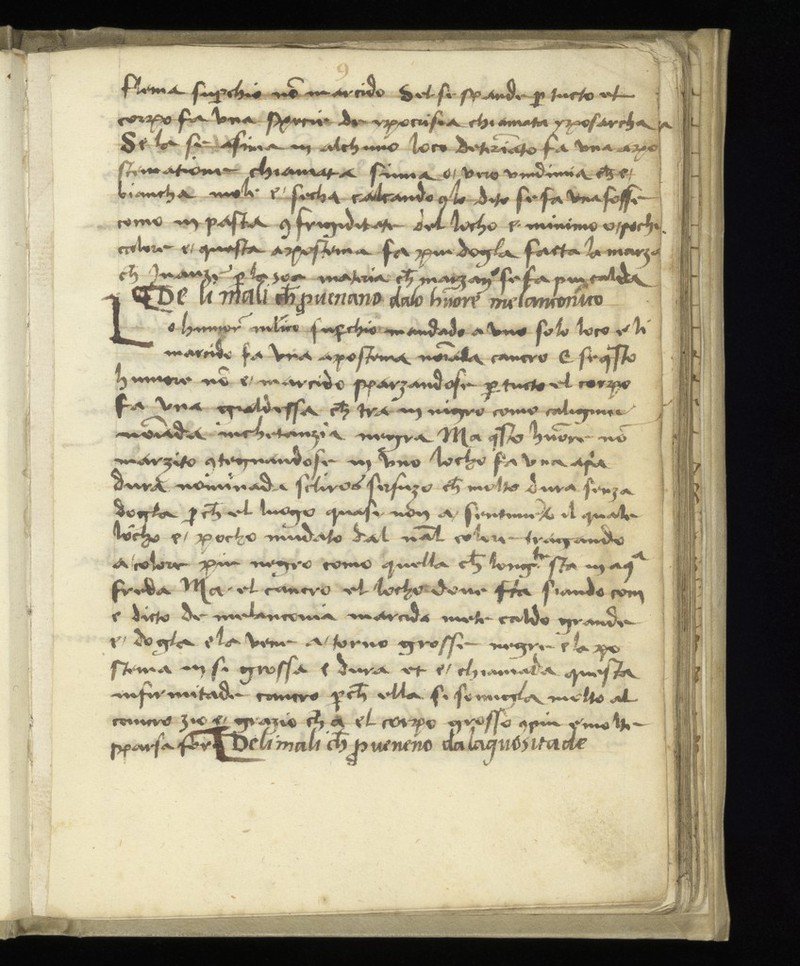 9
flema suꝑchio nõ marcido Sel se spande ꝑ tucto el
corpo fa vna specie de ypocrisia chiamata yposarcha
Se la se afima in alchuno loco detirĩato fa vna apo
stematione chiamata o, vero vndimia ch̃ e,
biancha mole e, secha calcando q̃lo dito se fa vna fosse
como in pasta ꝯ frigiditate del locho e minimo o, pocho
calore e, questa apostema fa piu dogla facta la marza
ch̃ Inanzi ꝑ la soa materia ch̃ marzan se fa piu calda
De li mali ch̃ ꝓuenano dalo hũore melanconico
Lo humor suꝑchio mandado a vno solo loco e li
marcido fa vna apostema cancro E se q̃sto
humore nõ e, marcido sparzandose ꝑ tucto el corpo
fa vna gialdessa ch̃ tra in nigro como caligine
negra Ma q̃sto hũore nõ
marzito ꝯtegnandose in vno locho fa vna
dura nominada scliros ch̃ molto dura senza
dogla ꝑch̃ el luogo quasi non a, sentimẽto il quale
locho e, pocho mudato dal nãl colore tragando
a, colore piu negro como quella ch̃ sta in aq̃
freda Ma, el cancro el locho doue siando com
e dicto de melanconia marcida mete caldo grande
e, dogla e la vene a, torno grosse negre e la po
stema in si grossa e dura et e, chiamada questa
infirmitade cancro ꝑch̃ ella se somegla molto al
cancro zio e, grazio ch̃ a el corpo grosso e molte
De li mali ch̃ ꝓueneno da laquositade